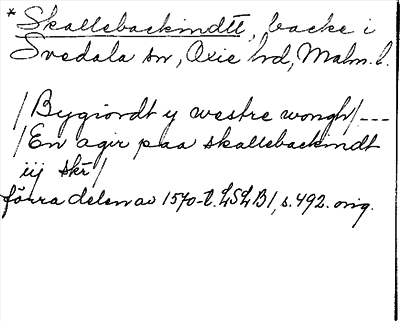 * Skallebackindtt, backe i
Svedala sn, Oxie hd, Malm. l.
/Bygiordt y westre wongh/ ---
/En agir paa skallebackindt
iij skr/
förra delen av 1570-t. LSLB1, s. 492. orig.